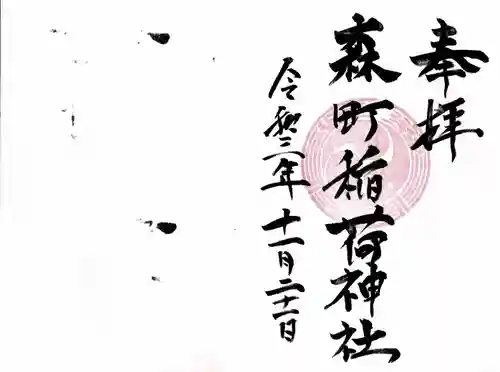 奉拝
森町稲荷神社
令和二年十一月二十一日